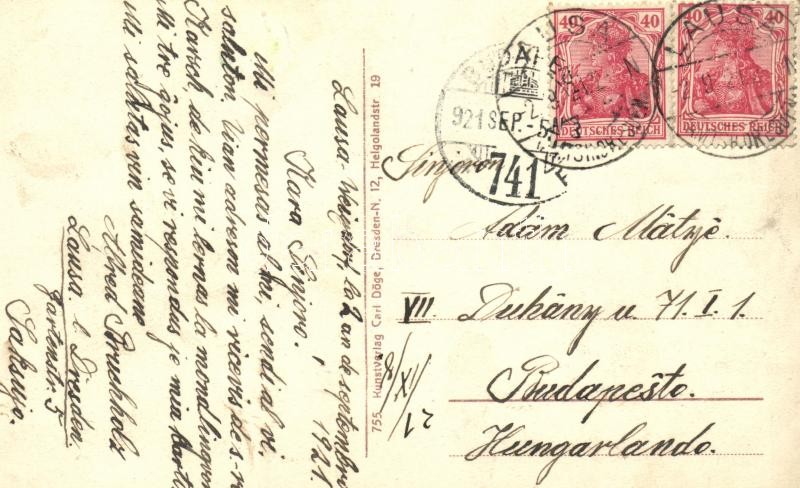 Lausa-Weixdorf, la 2an de septembro
1921.
Kara Sinjoro,
Mi permesas al mi, sendi al vi
saluton. Vian adreson mi ricevis de s-ro
Karsch, de kiu mi lernas la mondlingvon
Mi tre ĝojus, se vi respondus je mia karto.
Mi salutas vin samideane
Alfred Bruchholz
Lausa b. Dresden
Gartenstr. 5
Saksujo.
755. Kunstverlag Carl Döge, Dresden-N. 12, Helgolandstr 19
40
40
DEUTSCHES REICH
DEUTSCHES REICH
LAUSA
LAUSA
BUDAPEST
921 SEP. - 5
741
Sinjoron
Adám Mátyé.
VII. Duhány u. 71. I. 1.
Budapeŝto.
Hungarlando.
XI
12